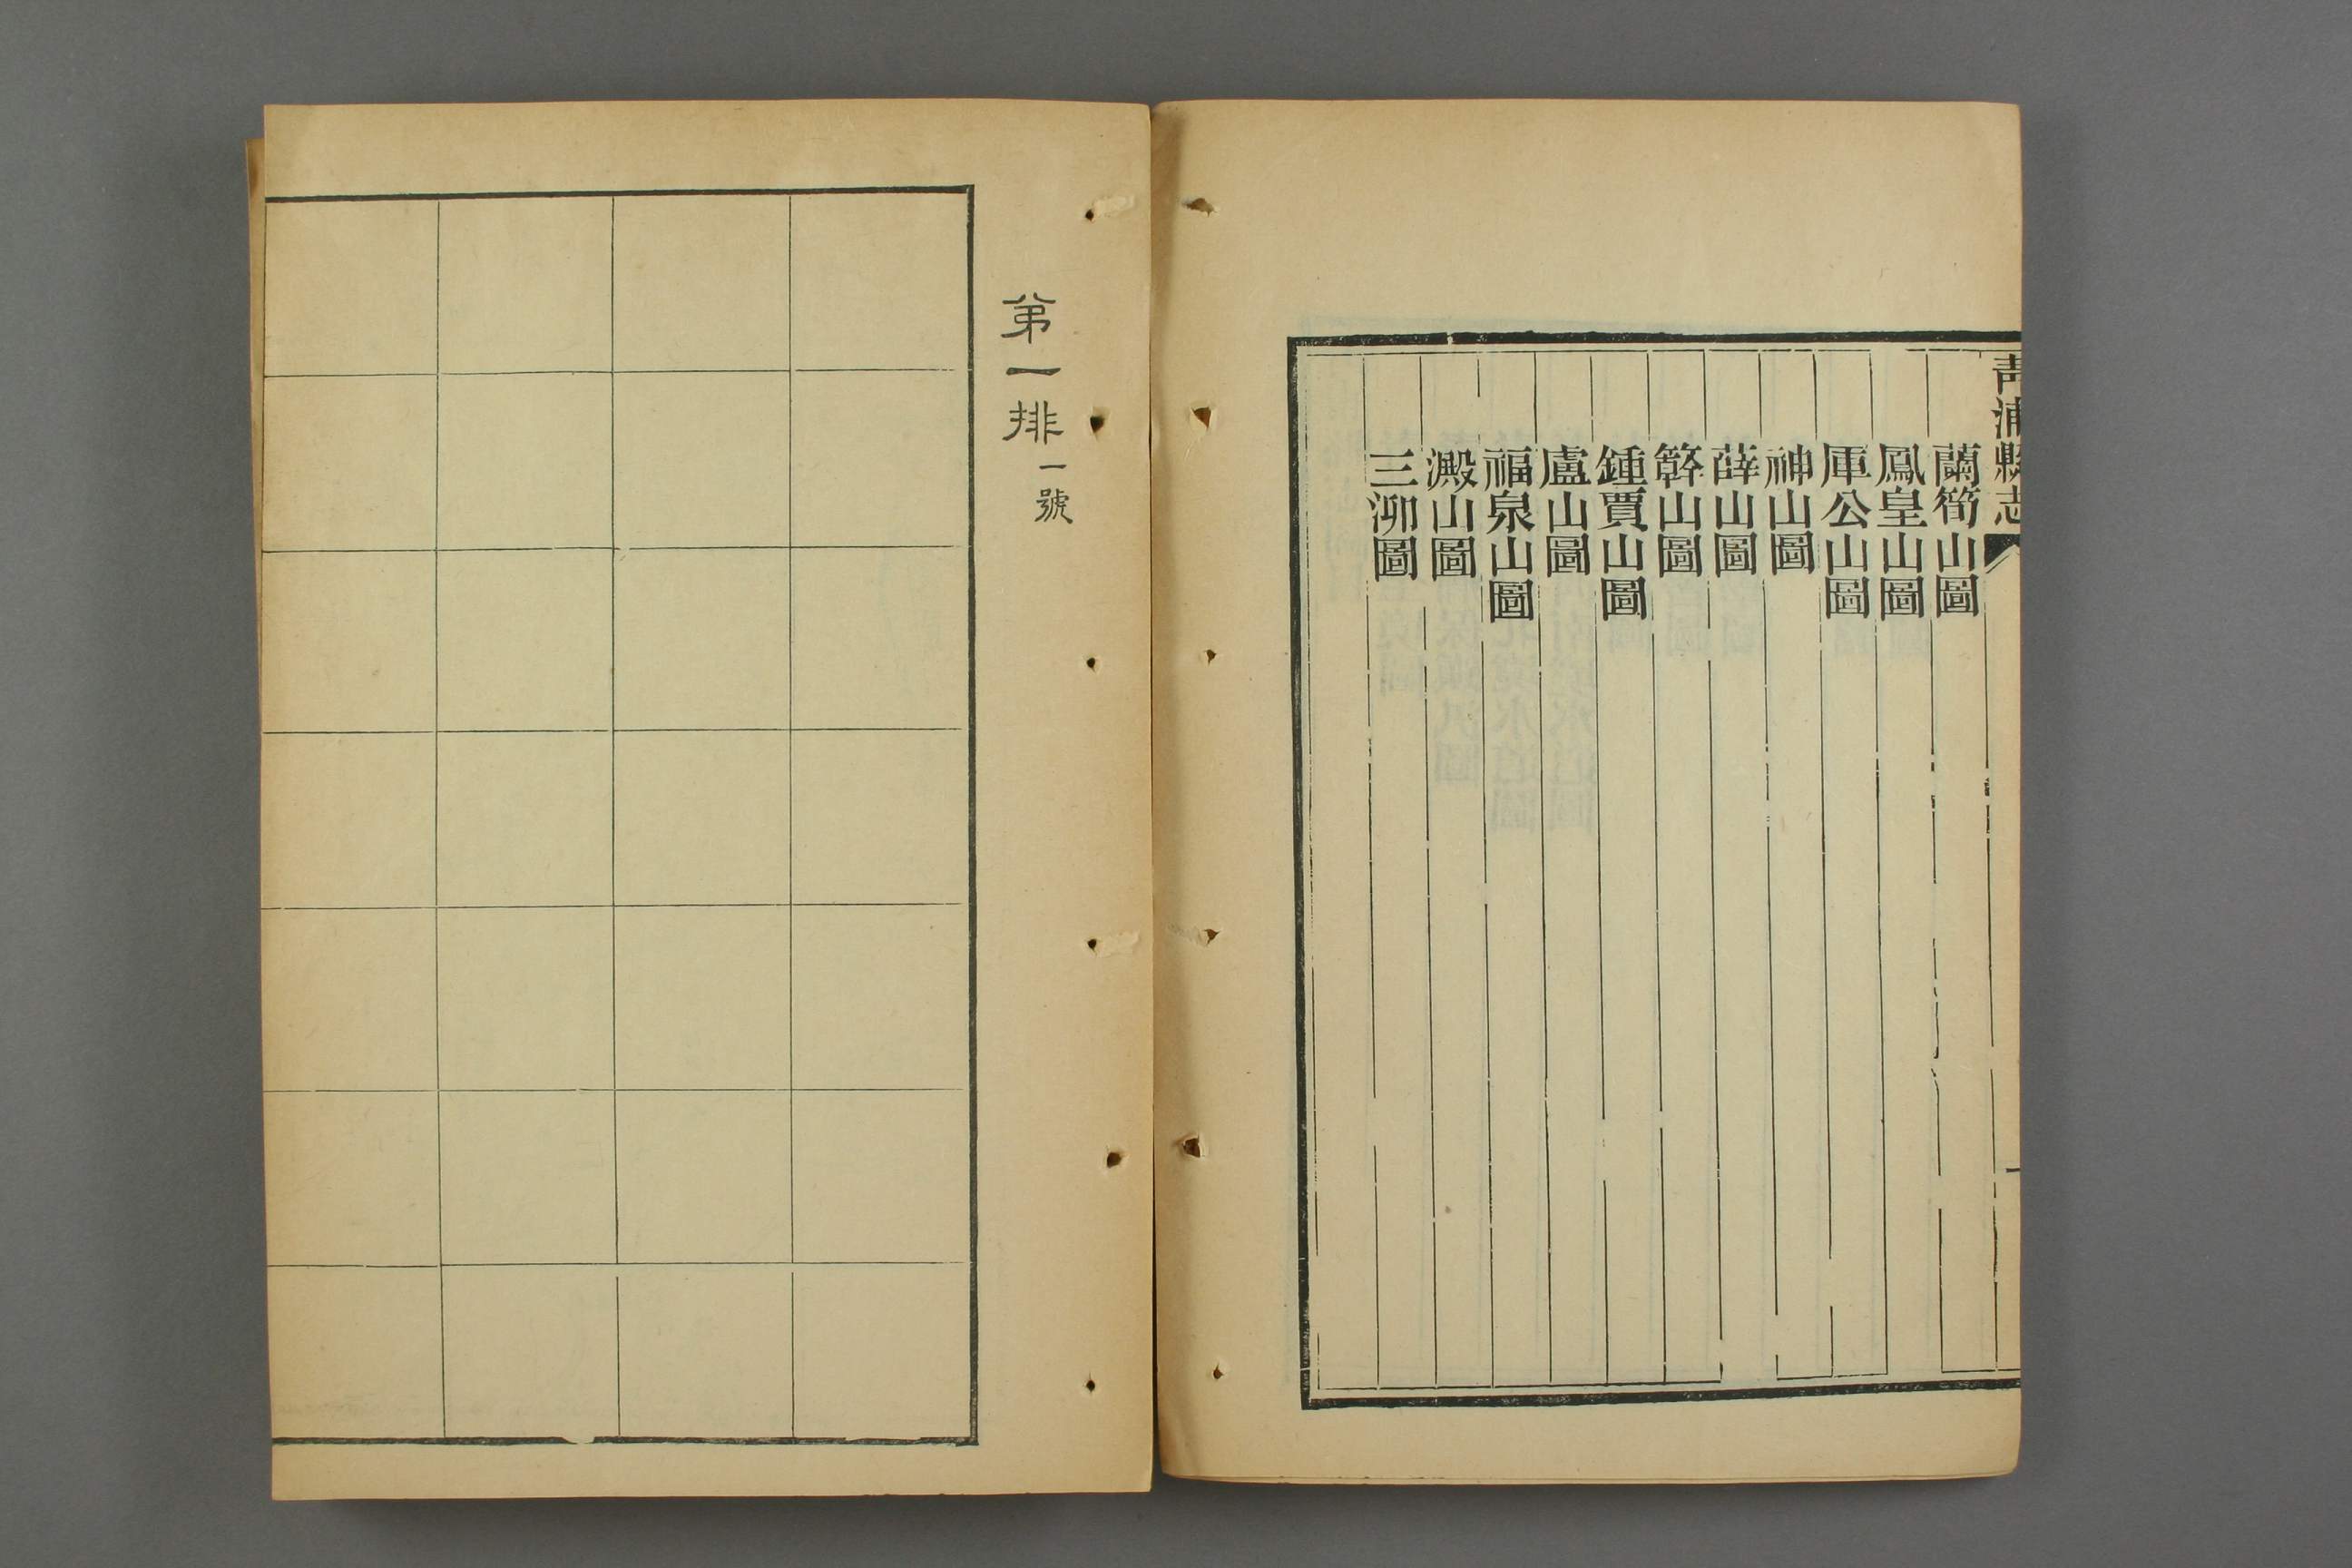 青浦縣志
蘭筍山圖
鳳皇山圖
厙公山圖
神山圖
薛山圖
簳山圖
鍾賈山圖
盧山圖
福泉山圖
澱山圖
三泖圖
一
弟一排一號